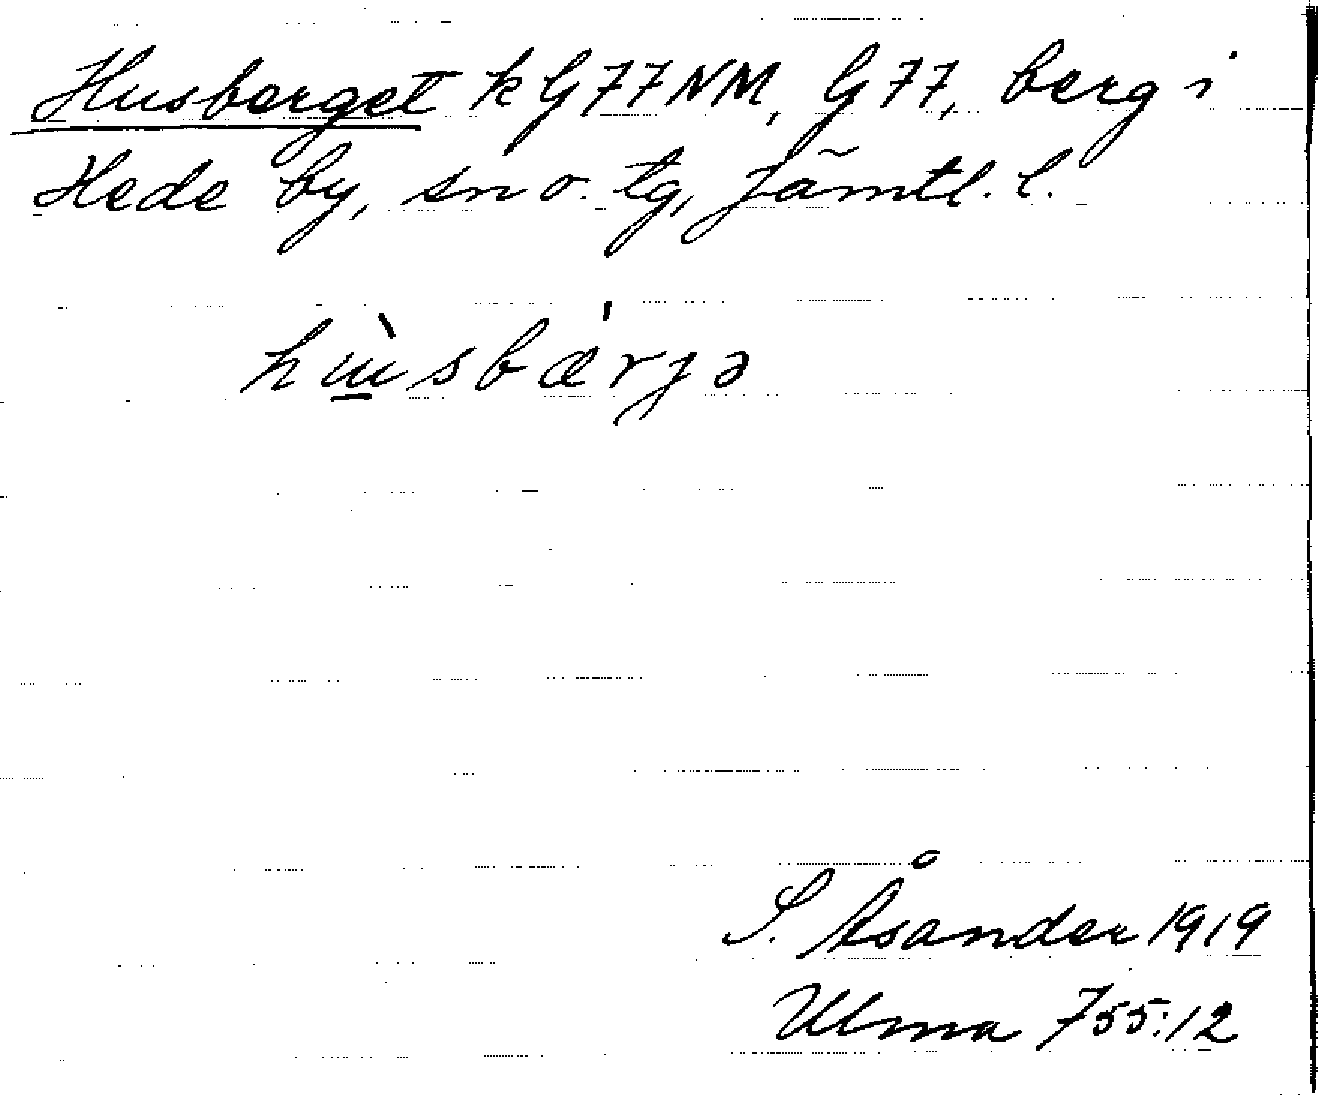 Husberget k G77NM, G77, berg i
Hede by, sn o. tg, Jämtl. l.
hùsbærjə
S. Åsander 1919
Ulma 755:12